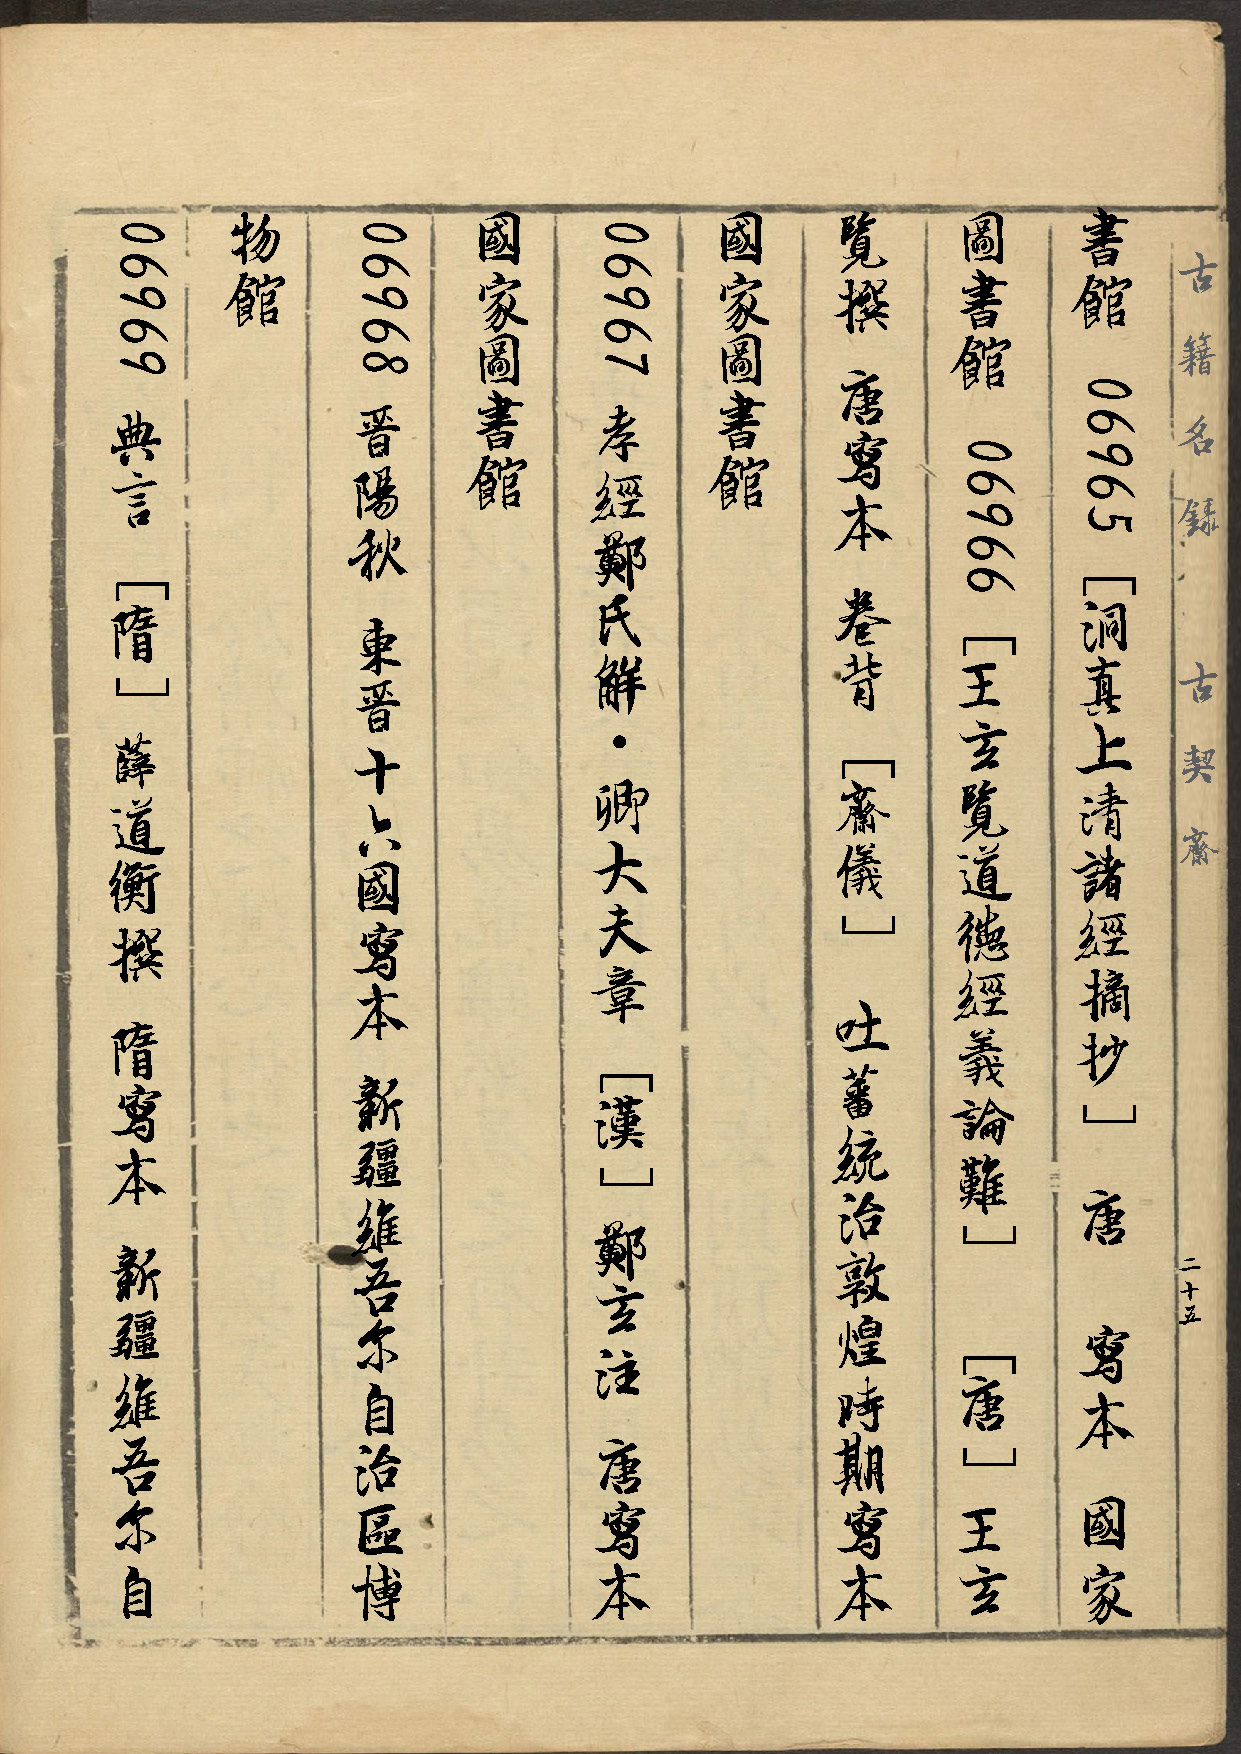 古籍名録 古契齋 二十五
書館 06965 [洞真上清諸經摘抄] 唐 寫本 國家
圖書館 06966 [王玄覽道德經義論難] [唐] 王玄
覽撰 唐寫本 卷背 [齋儀] 吐蕃統治敦煌時期寫本
國家圖書館
06967 孝經鄭氏解·卿大夫章 [漢] 鄭玄注 唐寫本
國家圖書館
06968 晉陽秋 東晉十六國寫本 新疆維吾尔自治區博
物館
06969 典言 [隋] 薛道衡撰 隋寫本 新疆維吾尔自